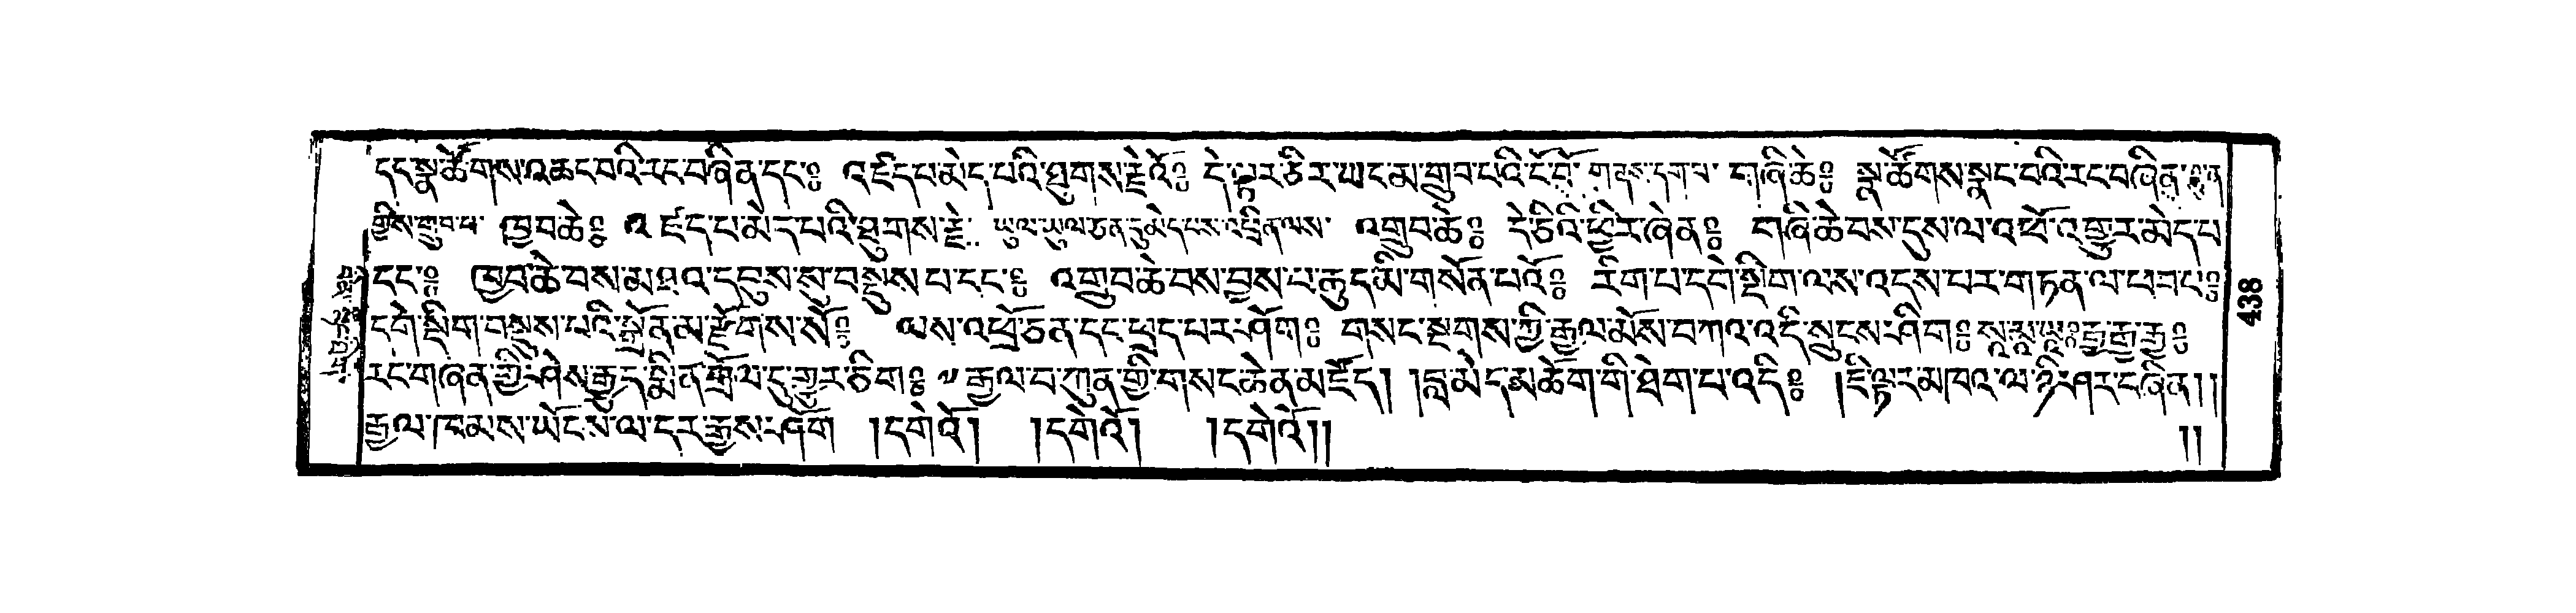 དང་སྣ་ཚོགས་འཆང་བའི་རང་བཞིན་དང་༔ འཛད་པ་མེད་པའི་ཐུགས་རྗེའོ༔ དེ་ལྟར་ཅིར་ཡང་མ་གྲུབ་པའི་ངོ་བོ་ གནས་དག་པ་ གཞི་ཆེ༔ སྣ་ཚོགས་སྣང་བའི་རང་བཞིན་
གྱིས་གྲུབ་པ་ ཁྱབ་ཆེ༔ འཛད་པ་མེད་པའི་ཐུགས་རྗེ་ ཡུལ་ཡུལ་ཅན་དུ་མེད་པས་འཕྲིན་ལས་ འགྲུབ་ཆེ༔ དེ་ཅིའི་ཕྱིར་ཞེ་ན༔ གཞི་ཆེ་བས་དུས་ལ་འཕོ་འགྱུར་མེད་པ་
དང་༔ ཁྱབ་ཆེ་བས་མཐའ་དབུས་སུ་བསྡུས་པ་དང་༔ འགྲུབ་ཆེ་བས་བྱས་པ་ཆུད་མི་གསོན་པའོ༔ རིག་པ་དགེ་སྡིག་ལས་འདས་པར་གཏན་ལ་ཕབ་པ༔
དགེ་སྡིག་བསྔས་པའི་སྒྲོན་མ་རྫོགས་སོ༔ ལས་འཕྲོ་ཅན་དང་ཕྲད་པར་ཤོག༔ གསང་སྔགས་ཀྱི་རྒྱལ་མོས་བཀའ་འདི་སྲུངས་ཤིག༔ ས་མ་ཡ༔ རྒྱ་རྒྱ་རྒྱ༔
རང་གཞན་གྱི་ཤེས་རྒྱུད་སྨིན་གྲོལ་དུ་གྱུར་ཅིག༔ རྒྱལ་བ་ཀུན་གྱི་གསང་ཆེན་མཛོད། །བླ་མེད་མཆོག་གི་ཐེག་པ་འདི༔ །ཇི་ལྟར་མཁའ་ལ་ཉི་ཤར་བཞིན།།
རྒྱལ་ཁམས་ཡོངས་ལ་དར་རྒྱས་ཤོག །དགེའོ། །དགེའོ། །དགེའོ།། །།